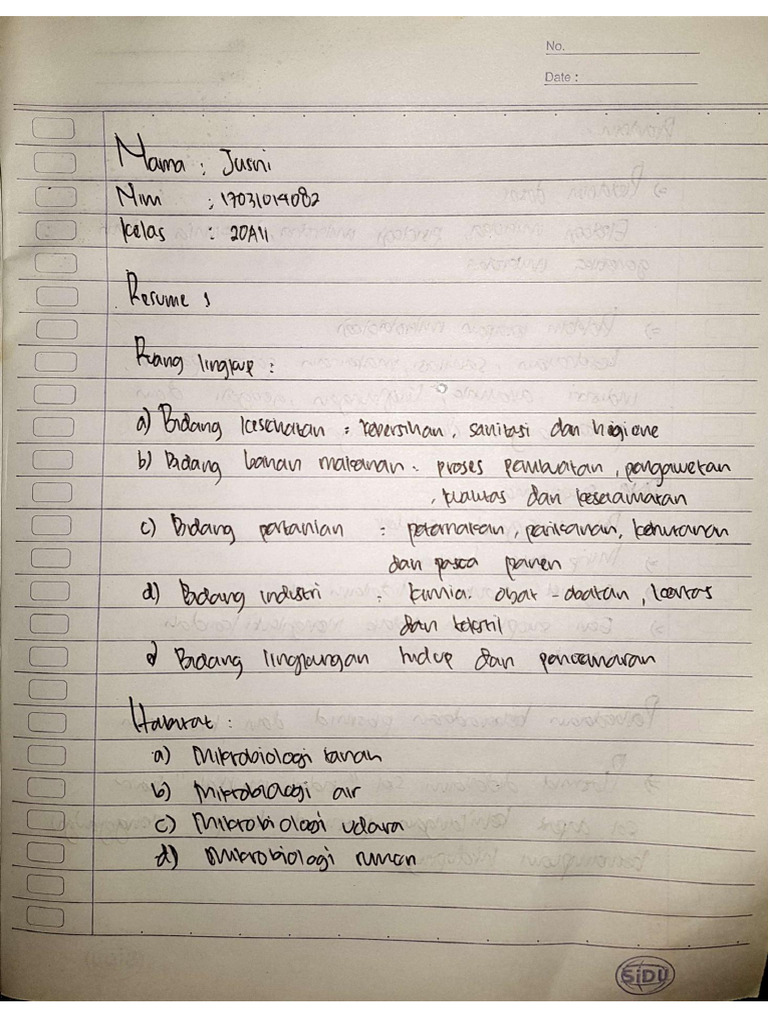 No.
Date :
Nama : Jusni
Nim : 17031014082
Kelas : 20A11
Resume 1
Ruang lingkup :
a) Bidang kesehatan : kebersihan, sanitasi dan higiene
b) Bidang bahan makanan : proses pembuatan, pengawetan
, kualitas dan keselamatan
c) Bidang pertanian : peternakan, perikanan, kehutanan
dan pasca panen
d) Bidang industri : kimia. obat-obatan, kertas
dan tekstil
e) Bidang lingkungan hidup dan pencemaran
Habitat :
a) Mikrobiologi tanah
b) Mikrobiologi air
c) Mikrobiologi udara
d) Mikrobiologi rumen
SiDU